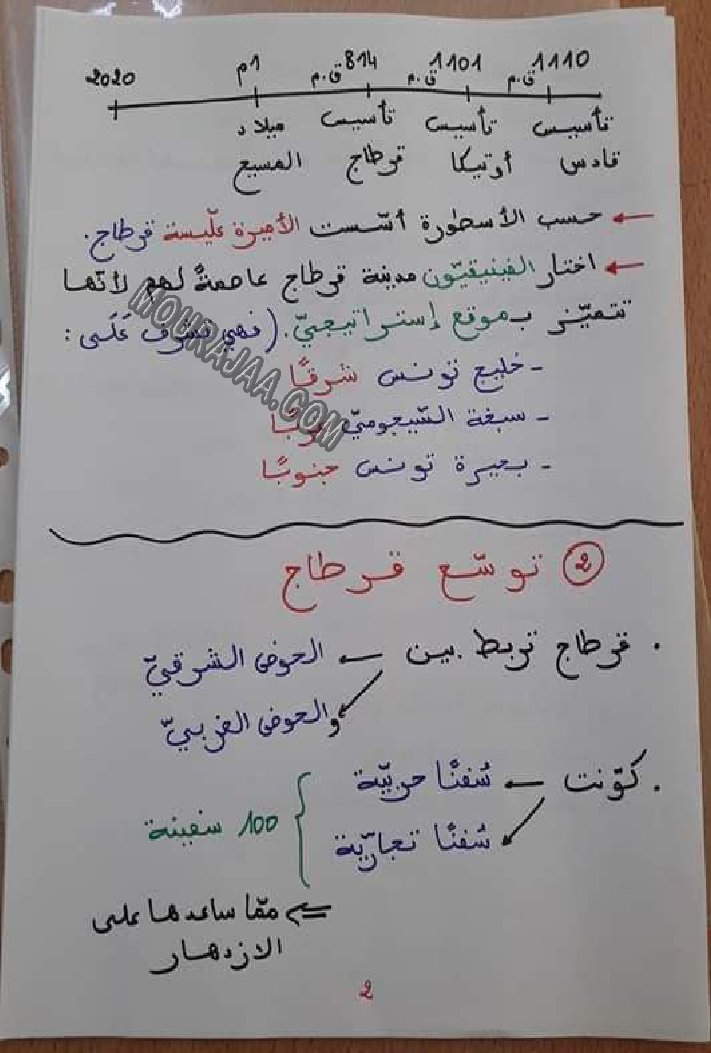 1110 ق.م 1101 ق.م 814 ق.م 1م 2020
تأسيس تأسيس تأسيس ميلاد
قادس أوتيكا قرطاج المسيح
← حسب الأسطورة أسّست الأميرة علّيسة قرطاج.
← اختار الفينيقيّون مدينة قرطاج عاصمةً لهم لأنّها
تتميّز بموقع إستراتيجيّ. (فهي تشرف عَلَى :
- خليج تونس شرقًا
- سبخة السّيجوميّ غربًا
- بحيرة تونس جنوبًا
② توسّع قرطاج
. قرطاج تربط بين ← الحوض الشرقيّ
والحوض الغربيّ
. كوّنت ← سُفنًا حربيّة
سُفنًا تجاريّة } 100 سفينة
⇐ ممّا ساعدها على
الازدهار
2
MOURAJAA.COM